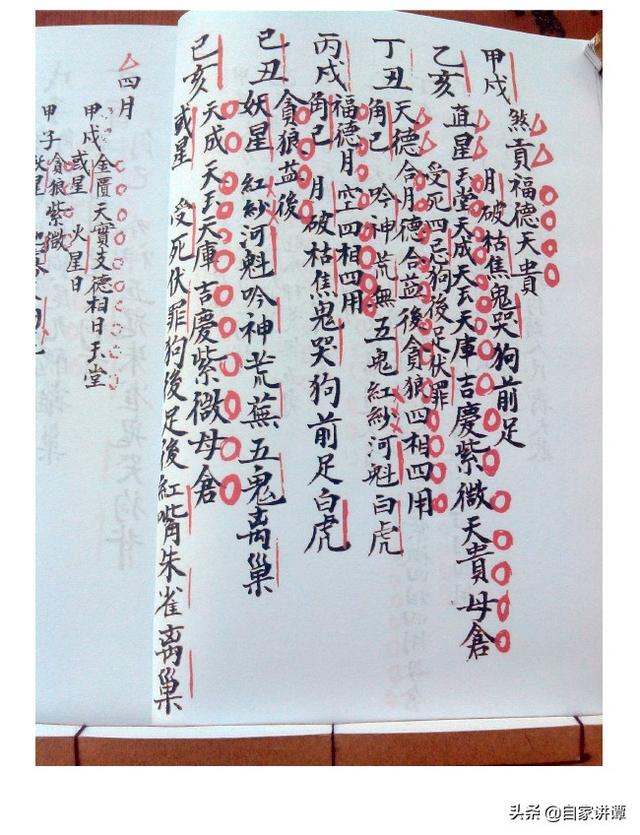 甲戌 煞貢福德天貴
月破枯焦鬼哭狗前足
乙亥 直星玉堂天成天玉天庫吉慶紫微天貴母倉
受死四忌狗後足伏罪
丁丑 天德合月德合益後貪狼四相四用
角己 吟神荒無五鬼紅紗河魁白虎
丙戌 福德月空四相四用
角己 月破枯焦鬼哭狗前足白虎
貪狼益後
己丑 妖星 紅紗河魁吟神荒蕪五鬼离巢
己亥 天成天玉天庫吉慶紫微母倉
或星 受死伏罪狗後足後紅嘴朱雀离巢
四月
甲戌 金匱天寶支德相日玉堂
或星 火星日
甲子 貪狼紫微
头条 @自家讲谭